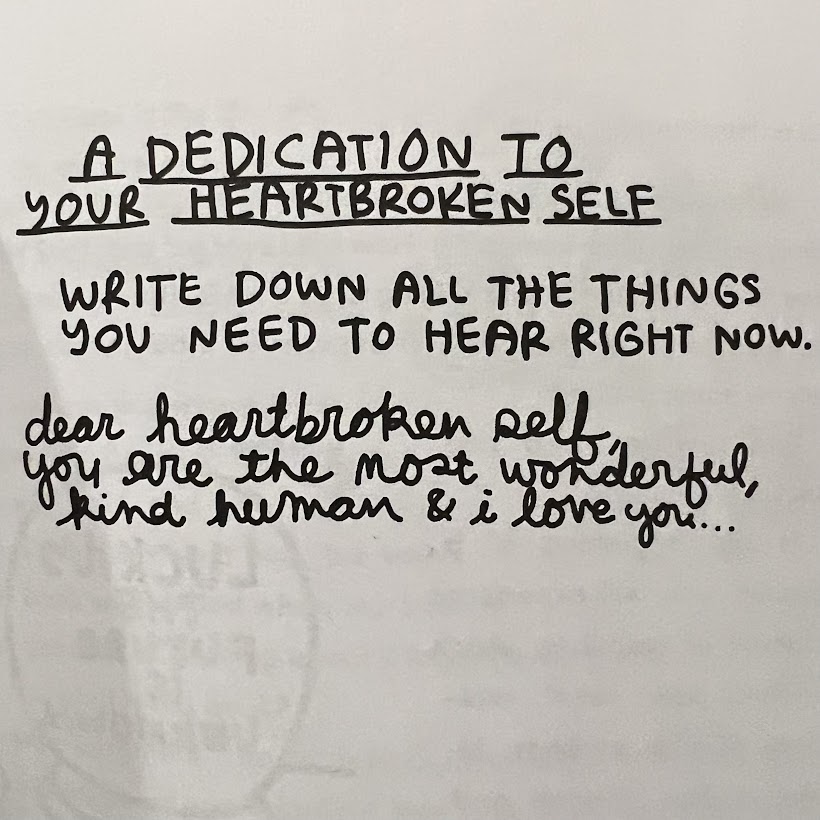 A DEDICATION TO
YOUR HEARTBROKEN SELF
WRITE DOWN ALL THE THINGS
YOU NEED TO HEAR RIGHT NOW.
dear heartbroken self,
you are the most wonderful,
kind human & i love you...